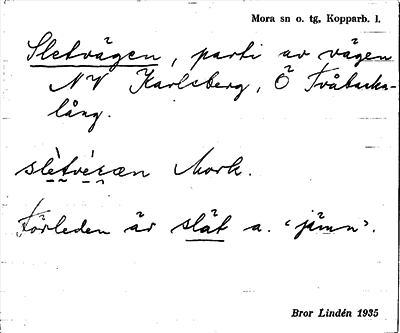 Mora sn o. tg, Kopparb. l.
Sletvägen, parti av vägen
NV Karlsberg, Ö Tvåbacka-
lång.
slètvéɛæn Mork.
Förleden är slät a. ‘jämn’.
Bror Lindén 1935